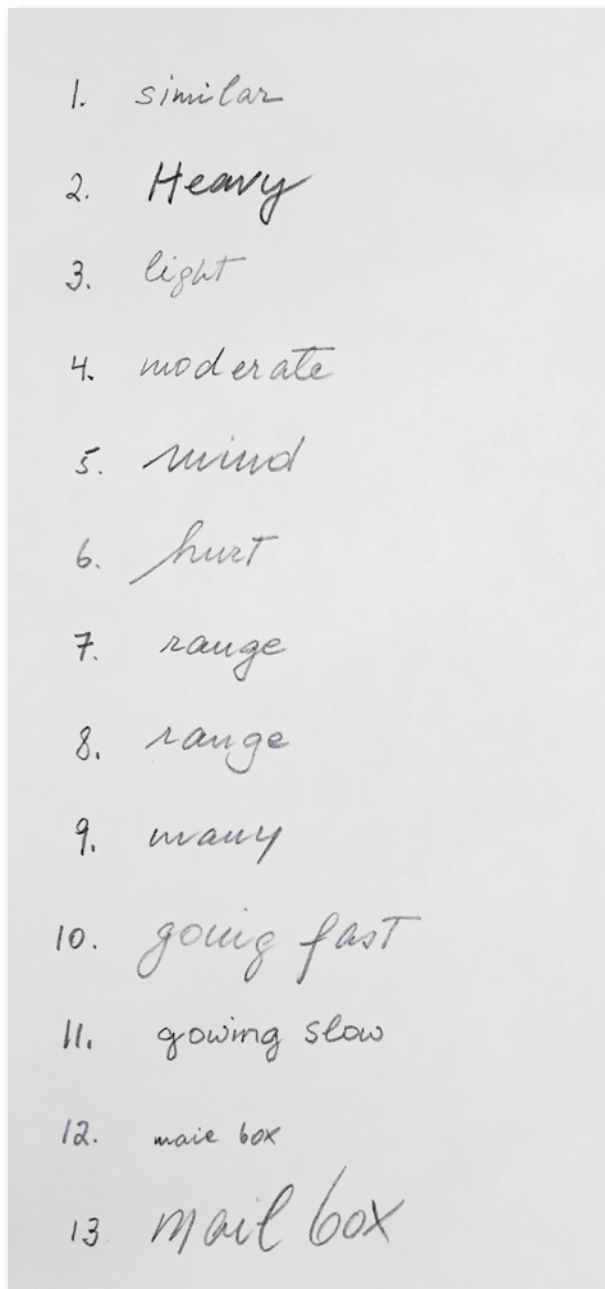 1. similar
2. Heavy
3. light
4. moderate
5. mind
6. hurt
7. range
8. range
9. many
10. going fast
11. gowing slow
12. maie box
13 mail box